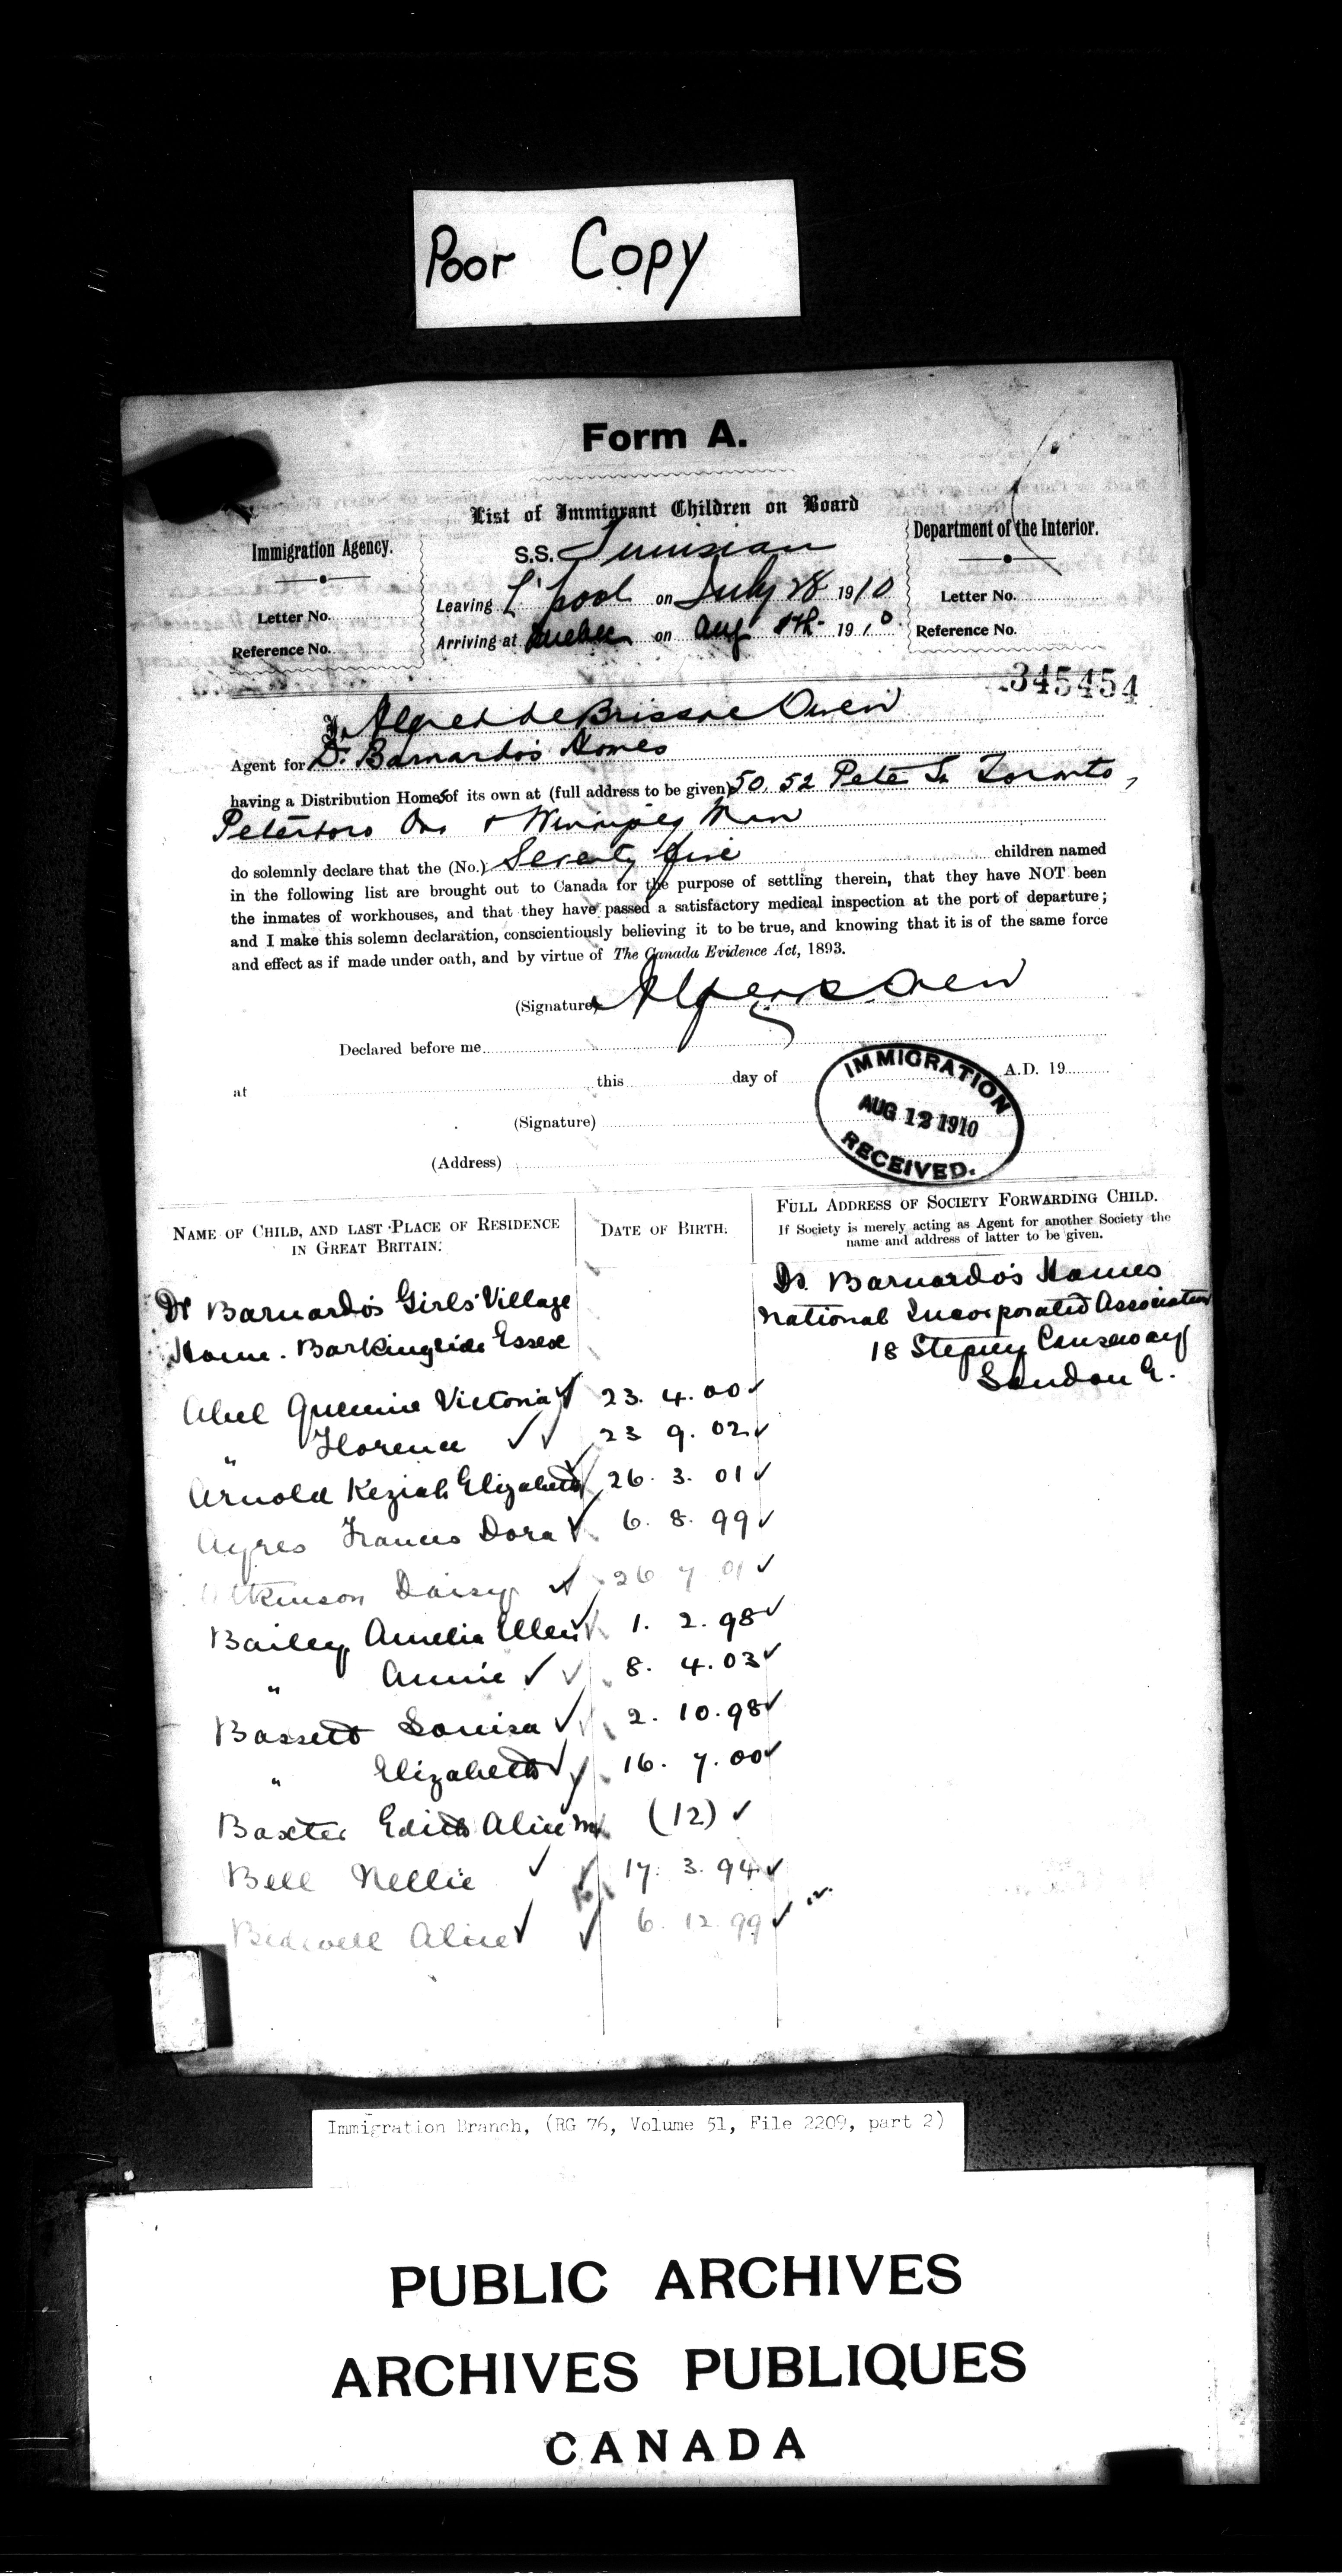 Poor Copy
Form A.
List of Immigrant Children on Board
Immigration Agency.
Department of the Interior.
S.S. Tunisian
Leaving L'pool on July 28 1910
Letter No.
Letter No.
Arriving at Quebec on Aug 8th 1910
Reference No.
Reference No.
345454
I, Alfred de Brissac Owen
Agent for Dr Barnardo's Homes
having a Distribution Homes of its own at (full address to be given) 50, 52 Peter St Toronto,
Peterboro Ont + Winnipeg Man
do solemnly declare that the (No.) Seventy five children named
in the following list are brought out to Canada for the purpose of settling therein, that they have NOT been
the inmates of workhouses, and that they have passed a satisfactory medical inspection at the port of departure;
and I make this solemn declaration, conscientiously believing it to be true, and knowing that it is of the same force
and effect as if made under oath, and by virtue of The Canada Evidence Act, 1893.
(Signature) Alfred Owen
Declared before me
at this day of A.D. 19
(Signature)
(Address)
IMMIGRATION
AUG 12 1910
RECEIVED.
NAME OF CHILD, AND LAST PLACE OF RESIDENCE
IN GREAT BRITAIN.
DATE OF BIRTH.
FULL ADDRESS OF SOCIETY FORWARDING CHILD.
If Society is merely acting as Agent for another Society the
name and address of latter to be given.
Dr Barnardo's Girls' Village
Home. Barkingside Essex
Dr. Barnardo's Homes
National Incorporated Association
18 Stepney Causeway
London E.
Abel Queenie Victoria ✓ 23. 4. 00 ✓
" Florence ✓ ✓ 23 9. 02 ✓
Arnold Keziah Elizabeth ✓ 26. 3. 01 ✓
Ayres Frances Dora ✓ 6. 8. 99 ✓
Atkinson Daisy ✓ 26 7 01 ✓
Bailey Amelia Ellen ✓ 1. 2. 98 ✓
" Annie ✓ ✓ 8. 4. 03 ✓
Bassett Louisa ✓ 2. 10. 98 ✓
" Elizabeth ✓ ✓ 16. 7. 00 ✓
Baxter Edith Alice M ✓ (12) ✓
Bell Nellie ✓ ✓ 17. 3. 94 ✓
Bidwell Alice ✓ ✓ 6. 12 99 ✓ 12.
Immigration Branch, (RG 76, Volume 51, File 2209, part 2)
PUBLIC ARCHIVES
ARCHIVES PUBLIQUES
CANADA